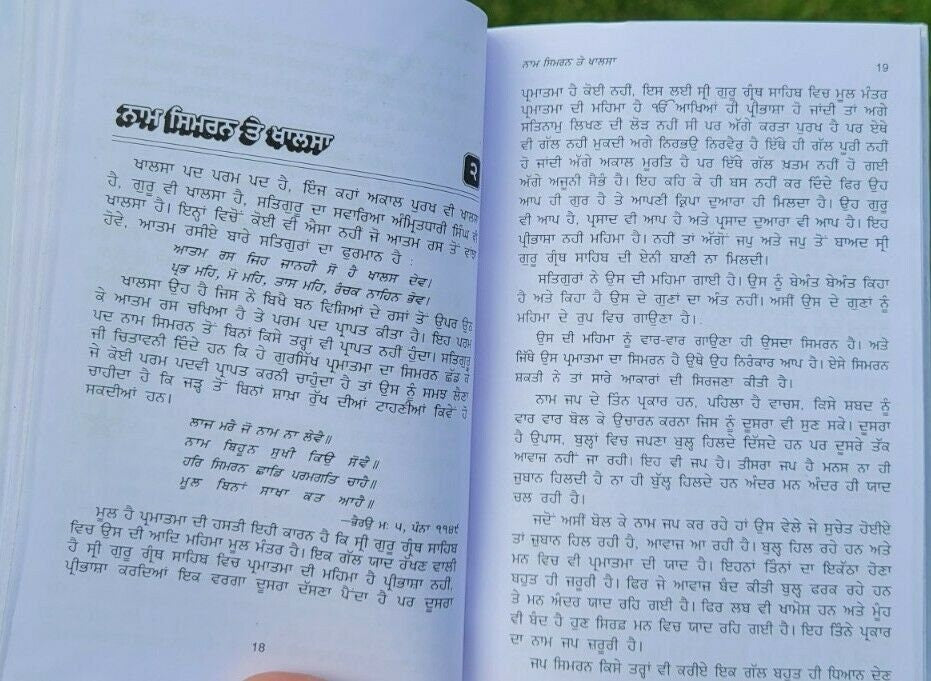 ਨਾਮ ਸਿਮਰਨ ਤੇ ਖਾਲਸਾ
੨
ਖਾਲਸਾ ਪਦ ਪਰਮ ਪਦ ਹੈ, ਇੰਜ ਕਹਾਂ ਅਕਾਲ ਪੁਰਖ ਵੀ ਖਾਲਸਾ
ਹੈ, ਗੁਰੂ ਵੀ ਖਾਲਸਾ ਹੈ, ਸਤਿਗੁਰੂ ਦਾ ਸਵਾਰਿਆ ਅੰਮ੍ਰਿਤਧਾਰੀ ਸਿੰਘ ਵੀ
ਖਾਲਸਾ ਹੈ। ਇਨ੍ਹਾਂ ਵਿਚੋਂ ਕੋਈ ਵੀ ਐਸਾ ਨਹੀਂ ਜੋ ਆਤਮ ਰਸ ਤੋਂ
ਹੋਵੇ, ਆਤਮ ਰਸੀਏ ਬਾਰੇ ਸਤਿਗੁਰਾਂ ਦਾ ਫੁਰਮਾਨ ਹੈ :
ਆਤਮ ਰਸ ਜਿਹ ਜਾਨਹੀ ਸੋ ਹੈ ਖਾਲਸ ਦੇਵ।
ਪ੍ਰਭ ਮਹਿ, ਮੋ ਮਹਿ, ਤਾਸ ਮਹਿ, ਰੰਚਕ ਨਾਹਿਨ ਭੇਵ।
ਖਾਲਸਾ ਉਹ ਹੈ ਜਿਸ ਨੇ ਬਿਖੈ ਬਨ ਵਿਸ਼ਿਆਂ ਦੇ ਰਸਾਂ ਤੋਂ ਉਪਰ ਉਠ
ਕੇ ਆਤਮ ਰਸ ਚਖਿਆ ਹੈ ਤੇ ਪਰਮ ਪਦ ਪ੍ਰਾਪਤ ਕੀਤਾ ਹੈ। ਇਹ ਪਰਮ
ਪਦ ਨਾਮ ਸਿਮਰਨ ਤੋਂ ਬਿਨਾਂ ਕਿਸੇ ਤਰ੍ਹਾਂ ਵੀ ਪ੍ਰਾਪਤ ਨਹੀਂ ਹੁੰਦਾ। ਸਤਿਗੁਰੂ
ਜੀ ਚਿਤਾਵਨੀ ਦਿੰਦੇ ਹਨ ਕਿ ਹੇ ਗੁਰਸਿੱਖ ਪ੍ਰਮਾਤਮਾ ਦਾ ਸਿਮਰਨ ਛੱਡ ਕੇ
ਜੇ ਕੋਈ ਪਰਮ ਪਦਵੀ ਪ੍ਰਾਪਤ ਕਰਨੀ ਚਾਹੁੰਦਾ ਹੈ ਤਾਂ ਉਸ ਨੂੰ ਸਮਝ ਲੈਣਾ
ਚਾਹੀਦਾ ਹੈ ਕਿ ਜੜ੍ਹ ਤੋਂ ਬਿਨਾਂ ਸ਼ਾਖਾ ਰੁੱਖ ਦੀਆਂ ਟਾਹਣੀਆਂ ਕਿਵੇਂ ਹੋ
ਸਕਦੀਆਂ ਹਨ।
ਲਾਜ ਮਰੈ ਜੋ ਨਾਮ ਨਾ ਲੇਵੈ॥
ਨਾਮ ਬਿਹੂਨ ਸੁਖੀ ਕਿਉ ਸੋਵੈ॥
ਹਰਿ ਸਿਮਰਨ ਛਾਡਿ ਪਰਮਗਤਿ ਚਾਹੈ॥
ਮੂਲ ਬਿਨਾਂ ਸਾਖਾ ਕਤ ਆਹੈ॥
—ਭੈਰਉ ਮ: ੫, ਪੰਨਾ ੧੧੪੯
ਮੂਲ ਹੈ ਪ੍ਰਮਾਤਮਾ ਦੀ ਹਸਤੀ ਇਹੀ ਕਾਰਨ ਹੈ ਕਿ ਸ੍ਰੀ ਗੁਰੂ ਗ੍ਰੰਥ ਸਾਹਿਬ
ਵਿਚ ਉਸ ਦੀ ਆਦਿ ਮਹਿਮਾ ਮੂਲ ਮੰਤਰ ਹੈ। ਇਕ ਗੱਲ ਯਾਦ ਰੱਖਣ ਵਾਲੀ
ਹੈ ਸ੍ਰੀ ਗੁਰੂ ਗ੍ਰੰਥ ਸਾਹਿਬ ਵਿਚ ਪ੍ਰਮਾਤਮਾ ਦੀ ਮਹਿਮਾ ਹੈ ਪ੍ਰੀਭਾਸ਼ਾ ਨਹੀ,
ਪ੍ਰੀਭਾਸ਼ਾ ਕਰਦਿਆਂ ਇਕ ਵਰਗਾ ਦੂਸਰਾ ਦੱਸਣਾ ਪੈਂਦਾ ਹੈ ਪਰ ਦੂਸਰਾ
18
ਨਾਮ ਸਿਮਰਨ ਤੇ ਖਾਲਸਾ
19
ਪ੍ਰਮਾਤਮਾ ਹੈ ਕੋਈ ਨਹੀਂ, ਇਸ ਲਈ ਸ੍ਰੀ ਗੁਰੂ ਗ੍ਰੰਥ ਸਾਹਿਬ ਵਿਚ ਮੂਲ ਮੰਤਰ
ਪ੍ਰਮਾਤਮਾ ਦੀ ਮਹਿਮਾ ਹੈ ੴ ਆਖਿਆਂ ਹੀ ਪ੍ਰੀਭਾਸ਼ਾ ਹੋ ਜਾਂਦੀ ਤਾਂ ਅਗੇ
ਸਤਿਨਾਮੁ ਲਿਖਣ ਦੀ ਲੋੜ ਨਹੀਂ ਸੀ ਪਰ ਅੱਗੇ ਕਰਤਾ ਪੁਰਖ ਹੈ ਪਰ ਏਥੇ
ਵੀ ਗੱਲ ਨਹੀਂ ਮੁਕਦੀ ਅਗੇ ਨਿਰਭਉ ਨਿਰਵੈਰੁ ਹੈ ਇੱਥੇ ਹੀ ਗੱਲ ਪੂਰੀ ਨਹੀਂ
ਹੋ ਜਾਂਦੀ ਅੱਗੇ ਅਕਾਲ ਮੂਰਤਿ ਹੈ ਪਰ ਇੱਥੇ ਗੱਲ ਖ਼ਤਮ ਨਹੀਂ ਹੋ ਗਈ
ਅੱਗੇ ਅਜੂਨੀ ਸੈਭੰ ਹੈ। ਇਹ ਕਹਿ ਕੇ ਹੀ ਬਸ ਨਹੀਂ ਕਰ ਦਿੰਦੇ ਫਿਰ ਉਹ
ਆਪ ਹੀ ਗੁਰ ਹੈ ਤੇ ਆਪਣੀ ਕ੍ਰਿਪਾ ਦੁਆਰਾ ਹੀ ਮਿਲਦਾ ਹੈ। ਉਹ ਗੁਰੂ
ਵੀ ਆਪ ਹੈ, ਪ੍ਰਸਾਦ ਵੀ ਆਪ ਹੈ ਅਤੇ ਪ੍ਰਸਾਦ ਦੁਆਰਾ ਵੀ ਆਪ ਹੈ। ਇਹ
ਪ੍ਰੀਭਾਸ਼ਾ ਨਹੀ ਮਹਿਮਾ ਹੈ। ਨਹੀਂ ਤਾਂ ਅੱਗੋਂ ਜਪੁ ਅਤੇ ਜਪੁ ਤੋਂ ਬਾਅਦ ਸ੍ਰੀ
ਗੁਰੂ ਗ੍ਰੰਥ ਸਾਹਿਬ ਦੀ ਏਨੀ ਬਾਣੀ ਨਾ ਮਿਲਦੀ।
ਸਤਿਗੁਰਾਂ ਨੇ ਉਸ ਦੀ ਮਹਿਮਾ ਗਾਈ ਹੈ। ਉਸ ਨੂੰ ਬੇਅੰਤ ਬੇਅੰਤ ਕਿਹਾ
ਹੈ ਅਤੇ ਕਿਹਾ ਹੈ ਉਸ ਦੇ ਗੁਣਾਂ ਦਾ ਅੰਤ ਨਹੀਂ। ਅਸੀਂ ਉਸ ਦੇ ਗੁਣਾਂ ਨੂੰ
ਮਹਿਮਾ ਦੇ ਰੂਪ ਵਿਚ ਗਾਉਣਾ ਹੈ।
ਉਸ ਦੀ ਮਹਿਮਾ ਨੂੰ ਵਾਰ-ਵਾਰ ਗਾਉਣਾ ਹੀ ਉਸਦਾ ਸਿਮਰਨ ਹੈ। ਅਤੇ
ਜਿੱਥੇ ਉਸ ਪ੍ਰਮਾਤਮਾ ਦਾ ਸਿਮਰਨ ਹੈ ਉਥੇ ਉਹ ਨਿਰੰਕਾਰ ਆਪ ਹੈ। ਏਸੇ ਸਿਮਰਨ
ਸ਼ਕਤੀ ਨੇ ਤਾਂ ਸਾਰੇ ਆਕਾਰਾਂ ਦੀ ਸਿਰਜਣਾ ਕੀਤੀ ਹੈ।
ਨਾਮ ਜਪ ਦੇ ਤਿੰਨ ਪ੍ਰਕਾਰ ਹਨ, ਪਹਿਲਾ ਹੈ ਵਾਚਸ, ਕਿਸੇ ਸ਼ਬਦ ਨੂੰ
ਵਾਰ ਵਾਰ ਬੋਲ ਕੇ ਉਚਾਰਨ ਕਰਨਾ ਜਿਸ ਨੂੰ ਦੂਸਰਾ ਵੀ ਸੁਣ ਸਕੇ। ਦੂਸਰਾ
ਹੈ ਉਪਾਸ, ਬੁਲ੍ਹਾਂ ਵਿਚ ਜਪਣਾ ਬੁਲ੍ਹ ਹਿਲਦੇ ਦਿੱਸਦੇ ਹਨ ਪਰ ਦੂਸਰੇ ਤੱਕ
ਆਵਾਜ਼ ਨਹੀਂ ਜਾ ਰਹੀ। ਇਹ ਵੀ ਜਪ ਹੈ। ਤੀਸਰਾ ਜਪ ਹੈ ਮਨਸ ਨਾ ਹੀ
ਜ਼ੁਬਾਨ ਹਿਲਦੀ ਹੈ ਨਾ ਹੀ ਬੁੱਲ੍ਹ ਹਿਲਦੇ ਹਨ ਅੰਦਰ ਮਨ ਅੰਦਰ ਹੀ ਯਾਦ
ਚਲ ਰਹੀ ਹੈ।
ਜਦੋਂ ਅਸੀਂ ਬੋਲ ਕੇ ਨਾਮ ਜਪ ਕਰ ਰਹੇ ਹਾਂ ਉਸ ਵੇਲੇ ਜੇ ਸੁਚੇਤ ਹੋਈਏ
ਤਾਂ ਜ਼ੁਬਾਨ ਹਿਲ ਰਹੀ ਹੈ, ਆਵਾਜ਼ ਆ ਰਹੀ ਹੈ। ਬੁਲ੍ਹ ਹਿਲ ਰਹੇ ਹਨ ਅਤੇ
ਮਨ ਵਿਚ ਵੀ ਪ੍ਰਮਾਤਮਾ ਦੀ ਯਾਦ ਹੈ। ਇਹਨਾਂ ਤਿੰਨਾਂ ਦਾ ਇਕੱਠਾ ਹੋਣਾ
ਬਹੁਤ ਹੀ ਜ਼ਰੂਰੀ ਹੈ। ਫਿਰ ਜੇ ਆਵਾਜ਼ ਬੰਦ ਕੀਤੀ ਬੁਲ੍ਹ ਫਰਕ ਰਹੇ ਹਨ
ਤੇ ਮਨ ਅੰਦਰ ਯਾਦ ਰਹਿ ਗਈ ਹੈ। ਫਿਰ ਲਬ ਵੀ ਖਾਮੋਸ਼ ਹਨ ਅਤੇ ਮੂੰਹ
ਵੀ ਬੰਦ ਹੈ ਹੁਣ ਸਿਰਫ਼ ਮਨ ਵਿਚ ਯਾਦ ਰਹਿ ਗਈ ਹੈ। ਇਹ ਤਿੰਨੇ ਪ੍ਰਕਾਰ
ਦਾ ਨਾਮ ਜਪ ਜ਼ਰੂਰੀ ਹੈ।
ਜਪ ਸਿਮਰਨ ਕਿਸੇ ਤਰ੍ਹਾਂ ਵੀ ਕਰੀਏ ਇਕ ਗੱਲ ਬਹੁਤ ਹੀ ਧਿਆਨ ਦੇਣ